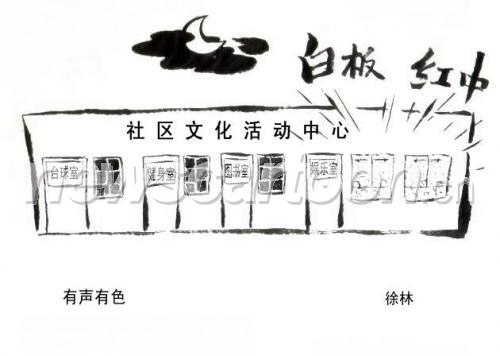 白板 红中
社区文化活动中心
台球室 健身室 图书室 娱乐室
newscartoon.cn
有声有色 徐林